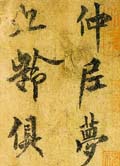 仲尼夢
九齡俱